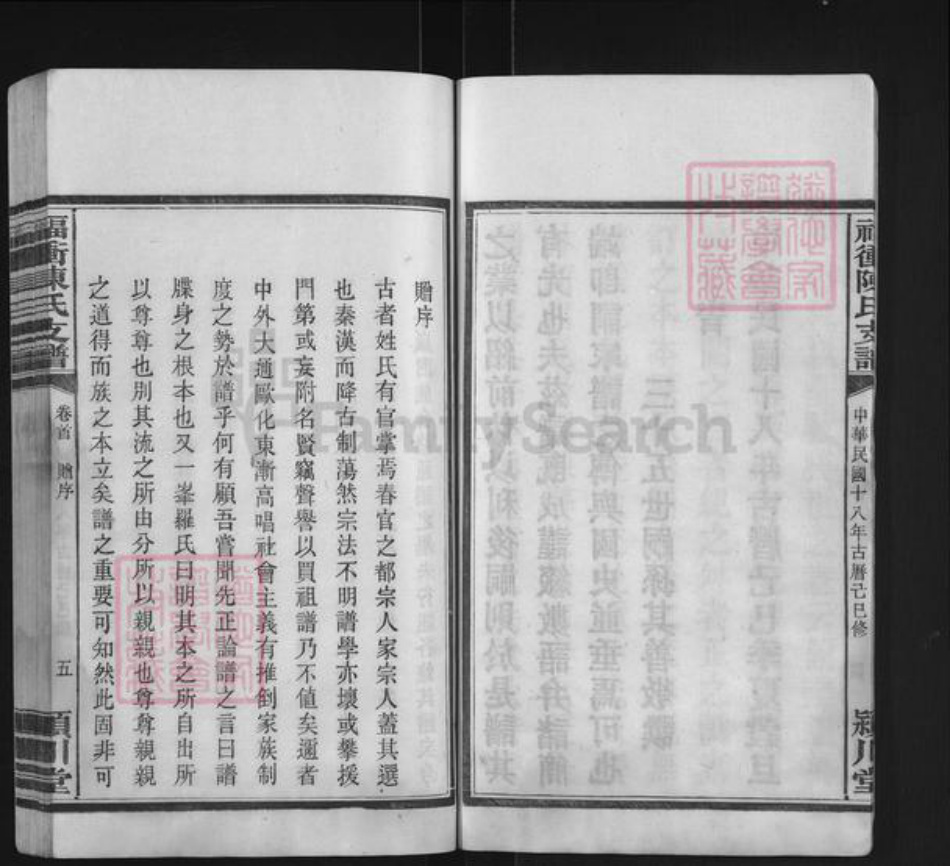 福衝陳氏支譜
中華民國十八年古曆己巳修
潁川堂
贈序
古者姓氏有官掌焉春官之都宗人家宗人蓋其選
也秦漢而降古制蕩然宗法不明譜學亦壞或攀援
門第或妄附名賢竊聲譽以買祖譜乃不値矣邇者
中外大通歐化東漸高唱社會主義有推倒家族制
度之勢於譜乎何有顧吾嘗聞先正論譜之言曰譜
牒身之根本也又一峯羅氏曰明其本之所自出所
以尊尊也別其流之所由分所以親親也尊尊親親
之道得而族之本立矣譜之重要可知然此固非可
福衝陳氏支譜
卷首
贈序
五
潁川堂
FamilySearch